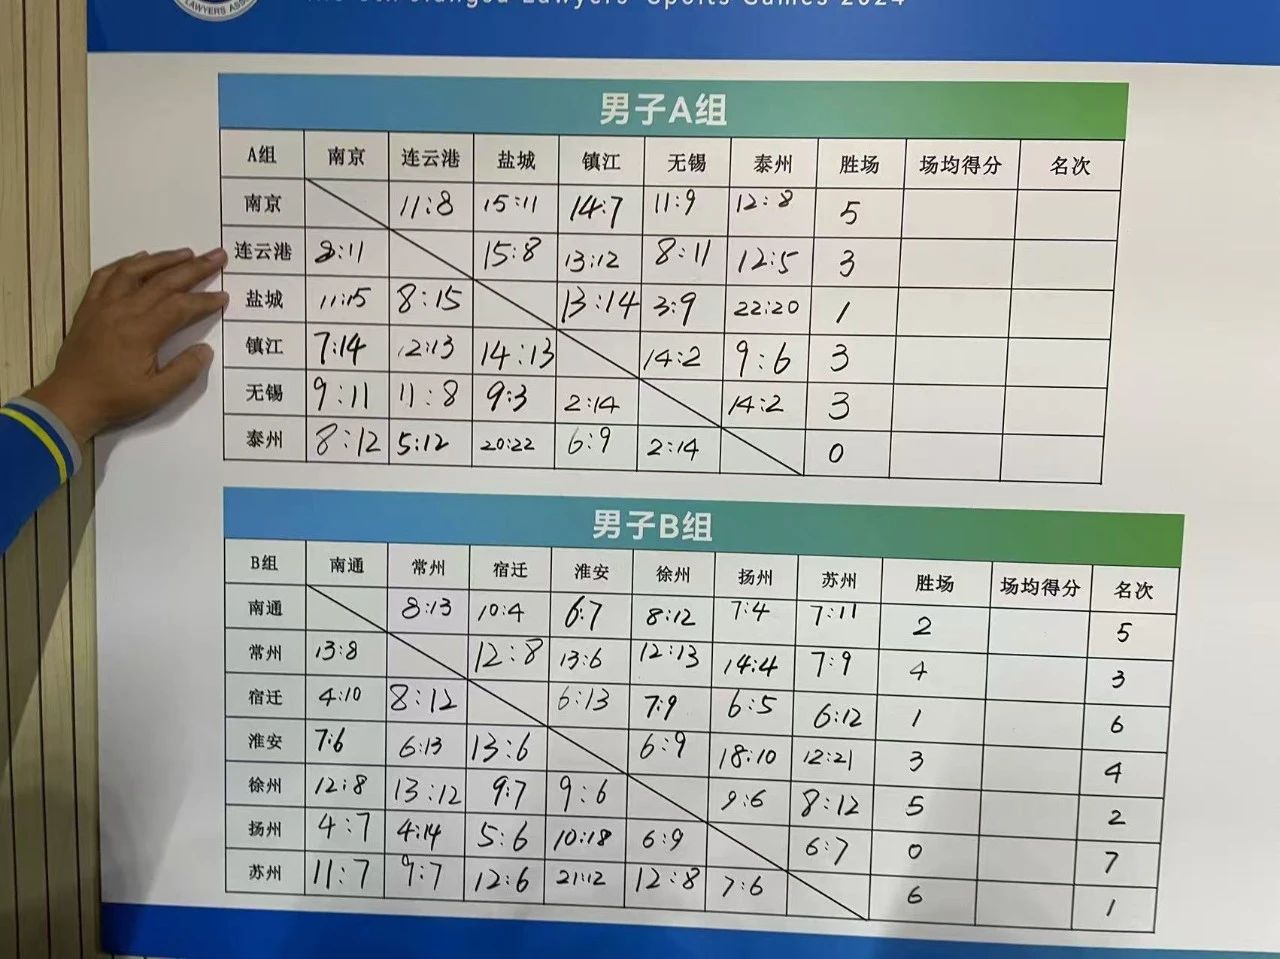 LAWYERS ASSO
Jiangsu Lawyers' Sports Games 2024
男子A组
A组 南京 连云港 盐城 镇江 无锡 泰州 胜场 场均得分 名次
南京 11:8 15:11 14:7 11:9 12:8 5
连云港 8:11 15:8 13:12 8:11 12:5 3
盐城 11:15 8:15 13:14 3:9 22:20 1
镇江 7:14 12:13 14:13 14:2 9:6 3
无锡 9:11 11:8 9:3 2:14 14:2 3
泰州 8:12 5:12 20:22 6:9 2:14 0
男子B组
B组 南通 常州 宿迁 淮安 徐州 扬州 苏州 胜场 场均得分 名次
南通 8:13 10:4 6:7 8:12 7:4 7:11 2 5
常州 13:8 12:8 13:6 12:13 14:4 7:9 4 3
宿迁 4:10 8:12 6:13 7:9 6:5 6:12 1 6
淮安 7:6 6:13 13:6 6:9 18:10 12:21 3 4
徐州 12:8 13:12 9:7 9:6 9:6 8:12 5 2
扬州 4:7 4:14 5:6 10:18 6:9 6:7 0 7
苏州 11:7 9:7 12:6 21:12 12:8 7:6 6 1